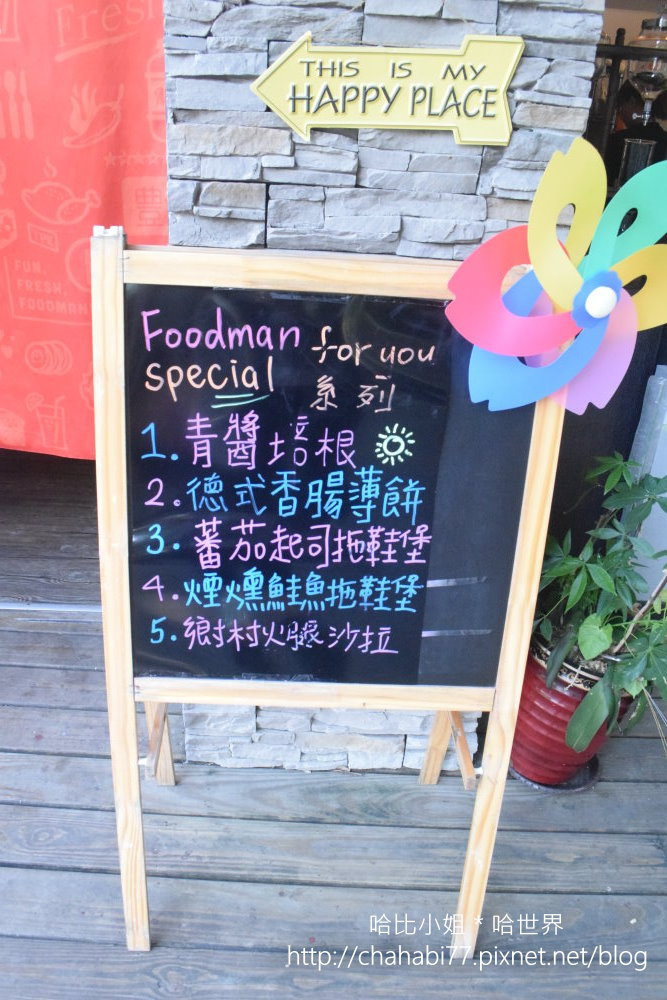 Fresh
THIS IS MY
HAPPY PLACE
FUN,
FRESH,
FOODMAN
Foodman for you
special 系列
1. 青醬培根
2. 德式香腸薄餅
3. 蕃茄起司拖鞋堡
4. 煙燻鮭魚拖鞋堡
5. 鄉村火腿沙拉
哈比小姐 * 哈世界
http://chahabi77.pixnet.net/blog